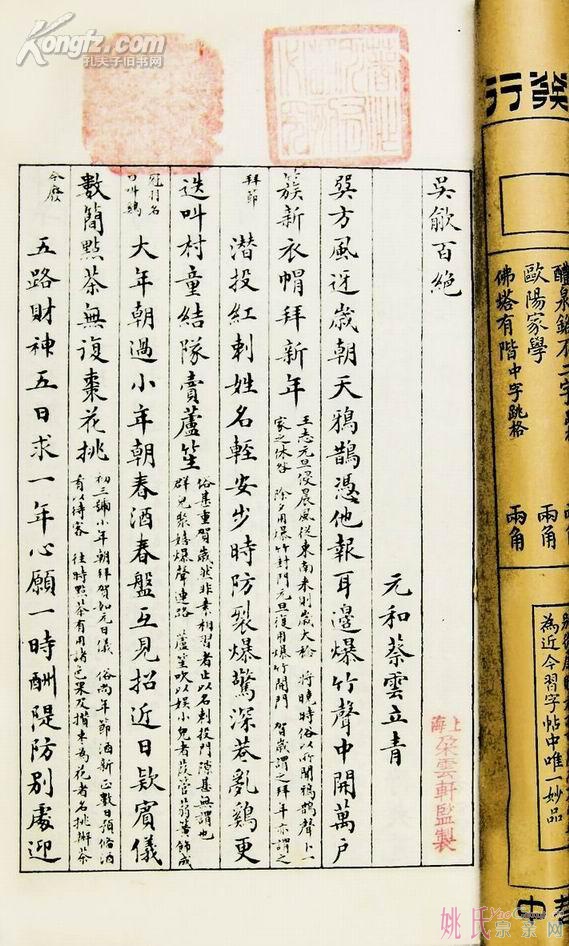 吳歈百絕
元和蔡雲立青
巽方風迓歲朝天鴉鵲憑他報耳邊爆竹聲中開萬戶
簇新衣帽拜新年
王志元旦侵晨風從東南來則歲大稔 將曉時俗以所聞鴉鵲聲卜一
家之休咎 除夕用爆竹封門元旦復用爆竹開門 賀歲謂之拜年亦謂之
拜節
潛投紅刺姓名輕安步時防裂爆驚深巷亂雞更
迭叫村童結隊賣蘆笙
俗甚重賀歲然非素相習者止以名刺投門隙甚無謂也
群兒聚嬉爆聲連路 蘆笙吹以娛小兒者葭管翦葦飾成
叫雞
大年朝過小年朝春酒春盤互見招近日欵賓儀
數簡點茶無復棗花挑
初三謂小年朝拜賀如元日儀 俗尚年節酒新正數日預備酒
肴以待客 往時點茶有用諸色果及攢棗為花者名挑瓣茶
今廢
五路財神五日求一年心願一時酬隄防別處迎
上海
朵雲軒監製
歐陽家學
佛塔有階 中字跳格
兩角
兩角
為近今習字帖中唯一妙品
行
中
Kongfz.com
孔夫子旧书网
姚氏